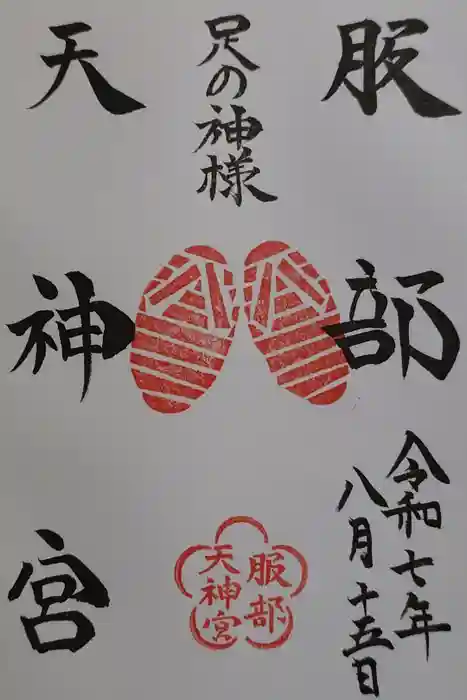 服部
天神宮
足の神様
令和七年
八月十五日
服部
天神宮